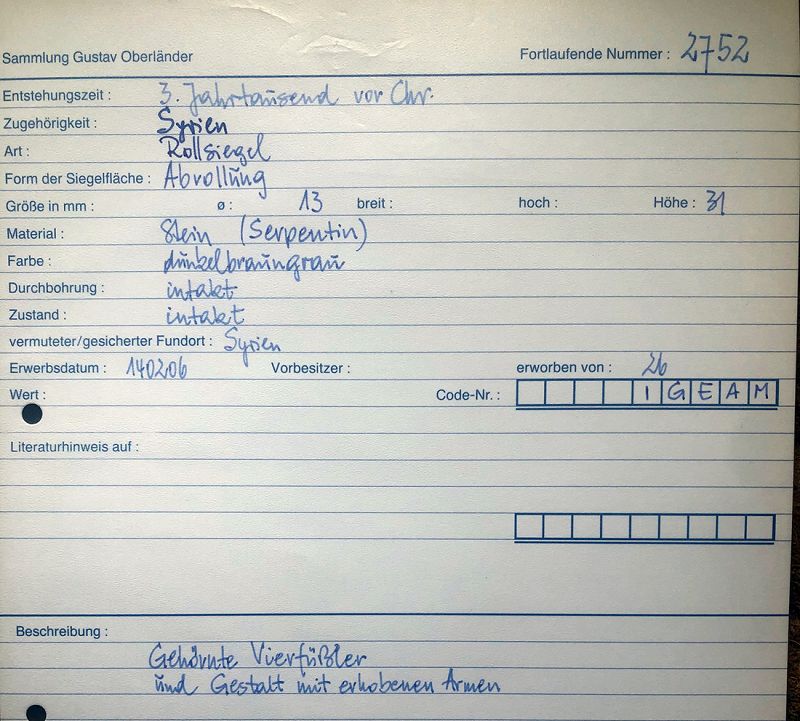 Sammlung Gustav Oberländer Fortlaufende Nummer : 2752
Entstehungszeit : 3. Jahrtausend vor Chr.
Zugehörigkeit : Syrien
Art : Rollsiegel
Form der Siegelfläche : Abrollung
Größe in mm : ø : 13 breit : hoch : Höhe : 31
Material : Stein (Serpentin)
Farbe : dunkelbraungrau
Durchbohrung : intakt
Zustand : intakt
vermuteter/gesicherter Fundort : Syrien
Erwerbsdatum : 140206 Vorbesitzer : erworben von :
Wert : Code-Nr. : I G E A M
Literaturhinweis auf :
Beschreibung :
Gehörnte Vierfüßler
und Gestalt mit erhobenen Armen